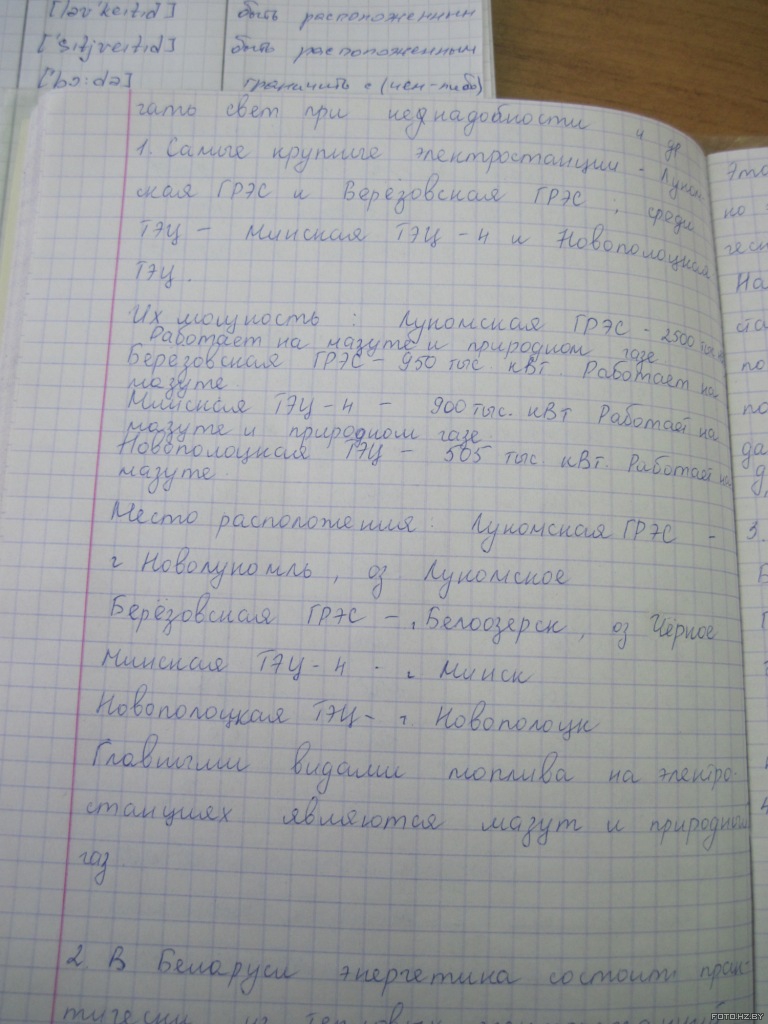 [ləvˈkeitid] быть расположенным
[ˈsitjveitid] быть расположенным
[ˈbɔ:də] граничить с (чем-либо)
гать свет при ненадобности и др
1. Самые крупные электростанции - Луком-
ская ГРЭС и Берёзовская ГРЭС ; среди
ТЭЦ - Минская ТЭЦ-4 и Новополоцкая
ТЭЦ.
Их мощность : Лукомская ГРЭС - 2500 тыс.
Работает на мазуте и природном газе
Берёзовская ГРЭС - 950 тыс. кВт. Работает на
мазуте.
Минская ТЭЦ-4 - 900 тыс. кВт Работает на
мазуте и природном газе.
Новополоцкая ТЭЦ - 505 тыс. кВт. Работает на
мазуте.
Место расположения: Лукомская ГРЭС -
г Новолукомль, оз Лукомское
Берёзовская ГРЭС - г Белоозерск, оз Чёрное
Минская ТЭЦ-4 - г Минск
Новополоцкая ТЭЦ - г Новополоцк
Главными видами топлива на электро-
станциях являются мазут и природный
газ.
2. В Беларуси энергетика состоит прак-
тически из
Это
но
гест
На
ста
по
по
да
3.
FOTO.HZ.BY